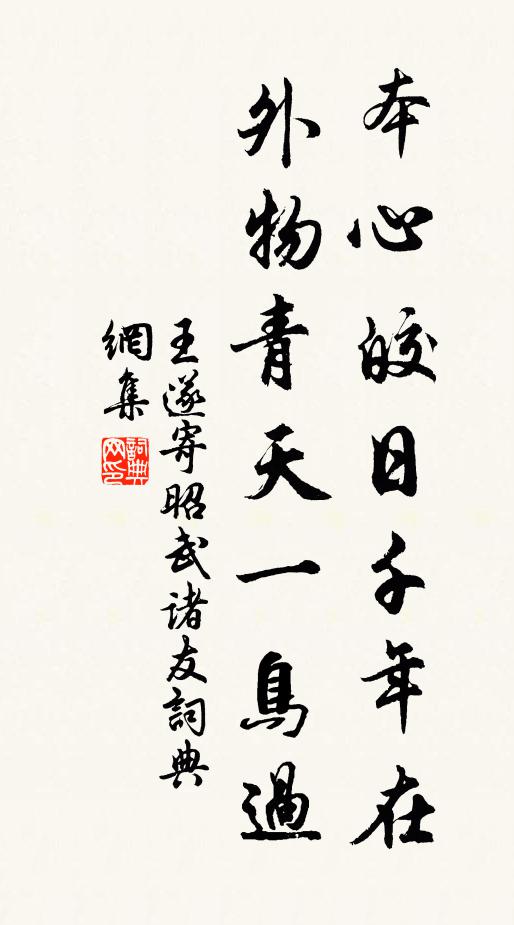 本心皎日千年在
外物青天一鳥過
王遂寄昭武諸友詞典
網集
詞典
网印